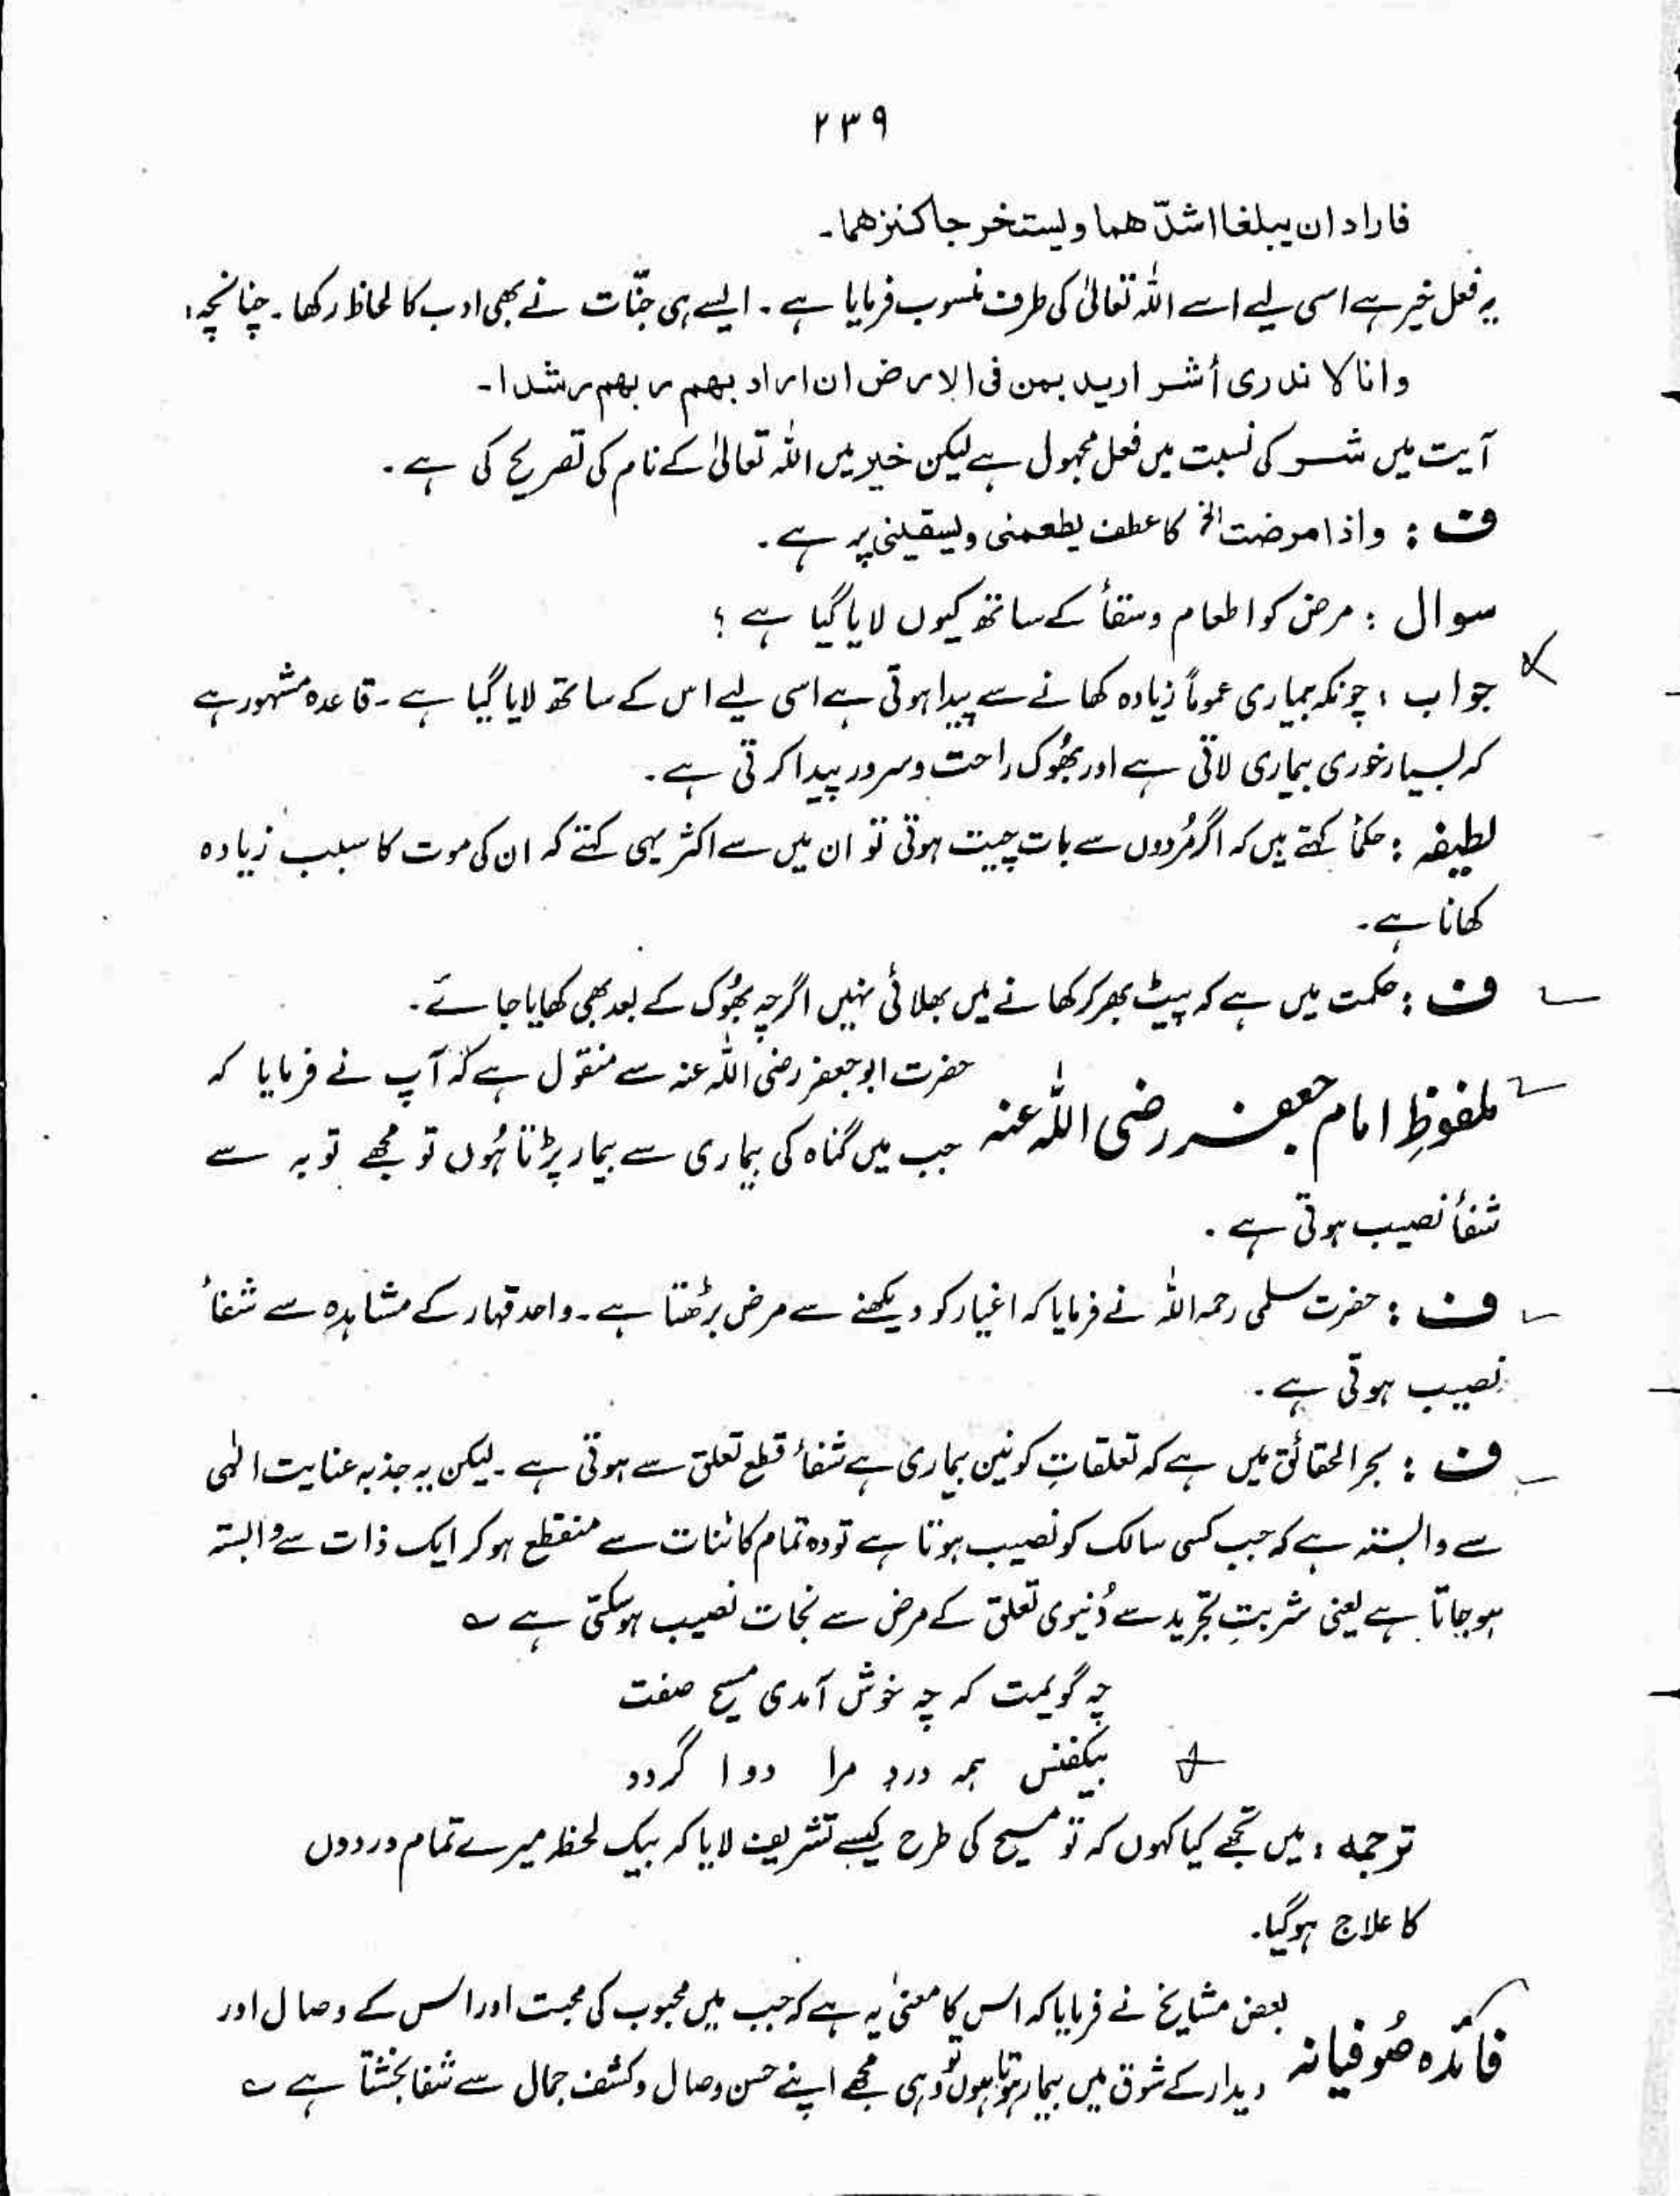 ۲۳۹
فاراد ان یبلغا اشدّھما ویستخرجا کنزھما۔
یہ فعل خیر ہے اسی لیے اسے اللہ تعالیٰ کی طرف منسوب فرمایا ہے۔ ایسے ہی جنّات نے بھی ادب کا لحاظ رکھا۔ چنانچہ:
وانا لا ندری أشر ارید بمن فی الارض ان اراد بھم ربھم رشدا۔
آیت میں شر کی نسبت میں فعل مجہول ہے لیکن خیر میں اللہ تعالیٰ کے نام کی تصریح کی ہے۔
ف : واذا مرضت الخ کا عطف یطعمنی ویسقینی پر ہے۔
سوال : مرض کو اطعام وسقأ کے ساتھ کیوں لایا گیا ہے؟
جواب : چونکہ بیماری عموماً زیادہ کھانے سے پیدا ہوتی ہے اسی لیے اس کے ساتھ لایا گیا ہے۔ قاعدہ مشہور ہے
کہ بسیار خوری بیماری لاتی ہے اور بھُوک راحت و سرور پیدا کرتی ہے۔
لطیفہ : حکمأ کہتے ہیں کہ اگر مُردوں سے بات چیت ہوتی تو ان میں سے اکثر یہی کہتے کہ ان کی موت کا سبب زیادہ
کھانا ہے۔
ف : حکمت میں ہے کہ پیٹ بھر کر کھانے میں بھلائی نہیں اگرچہ بھُوک کے بعد بھی کھایا جائے۔
ملفوظِ امام جعفر رضی اللہ عنہ حضرت ابو جعفر رضی اللہ عنہ سے منقول ہے کہ آپ نے فرمایا کہ
جب میں گناہ کی بیماری سے بیمار پڑتا ہُوں تو مجھے توبہ سے
شفأ نصیب ہوتی ہے۔
ف : حضرت سلمی رحمہ اللہ نے فرمایا کہ اغیار کو دیکھنے سے مرض بڑھتا ہے۔ واحد قہار کے مشاہدہ سے شفأ
نصیب ہوتی ہے۔
ف : بحر الحقائق میں ہے کہ تعلقاتِ کونین بیماری ہے شفأ قطع تعلق سے ہوتی ہے۔ لیکن یہ جذبہ عنایت الٰہی
سے وابستہ ہے کہ جب کسی سالک کو نصیب ہوتا ہے تو وہ تمام کائنات سے منقطع ہو کر ایک ذات سے وابستہ
ہو جاتا ہے یعنی شربتِ تجرید سے دُنیوی تعلق کے مرض سے نجات نصیب ہو سکتی ہے ؎
چہ گویمت کہ چہ خوش آمدی مسیح صفت
بیکنفس ہمہ درد مرا دوا گردد
ترجمہ : میں تجھے کیا کہوں کہ تو مسیح کی طرح کیسے تشریف لایا کہ بیک لحظہ میرے تمام دردوں
کا علاج ہو گیا۔
فائدہ صُوفیانہ بعض مشایخ نے فرمایا کہ اس کا معنیٰ یہ ہے کہ جب میں محبوب کی محبت اور اس کے وصال اور
دیدار کے شوق میں بیمار ہوتا ہوں تو وہی مجھے اپنے حسن وصال و کشف جمال سے شفا بخشتا ہے ؎